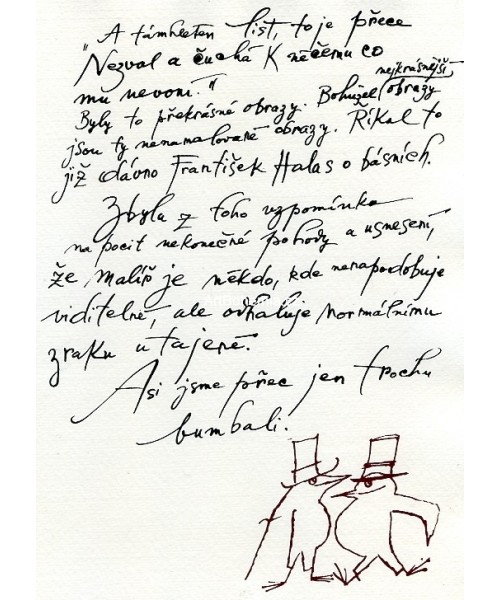 A támhleten list, to je přece
"Nezval a čuchá k něčemu co
mu nevoní."
Byly to překrásné obrazy. Bohužel nejkrásnější obrazy
jsou ty nenamalované obrazy. Říkal to
již dávno František Halas o básních.
Zbyla z toho vzpomínka
na pocit nekonečné pohody a usnesení,
že malíř je někdo, kdo nenapodobuje
viditelné, ale odhaluje normálnímu
zraku utajené.
Asi jsme přec jen trochu
bumbali.